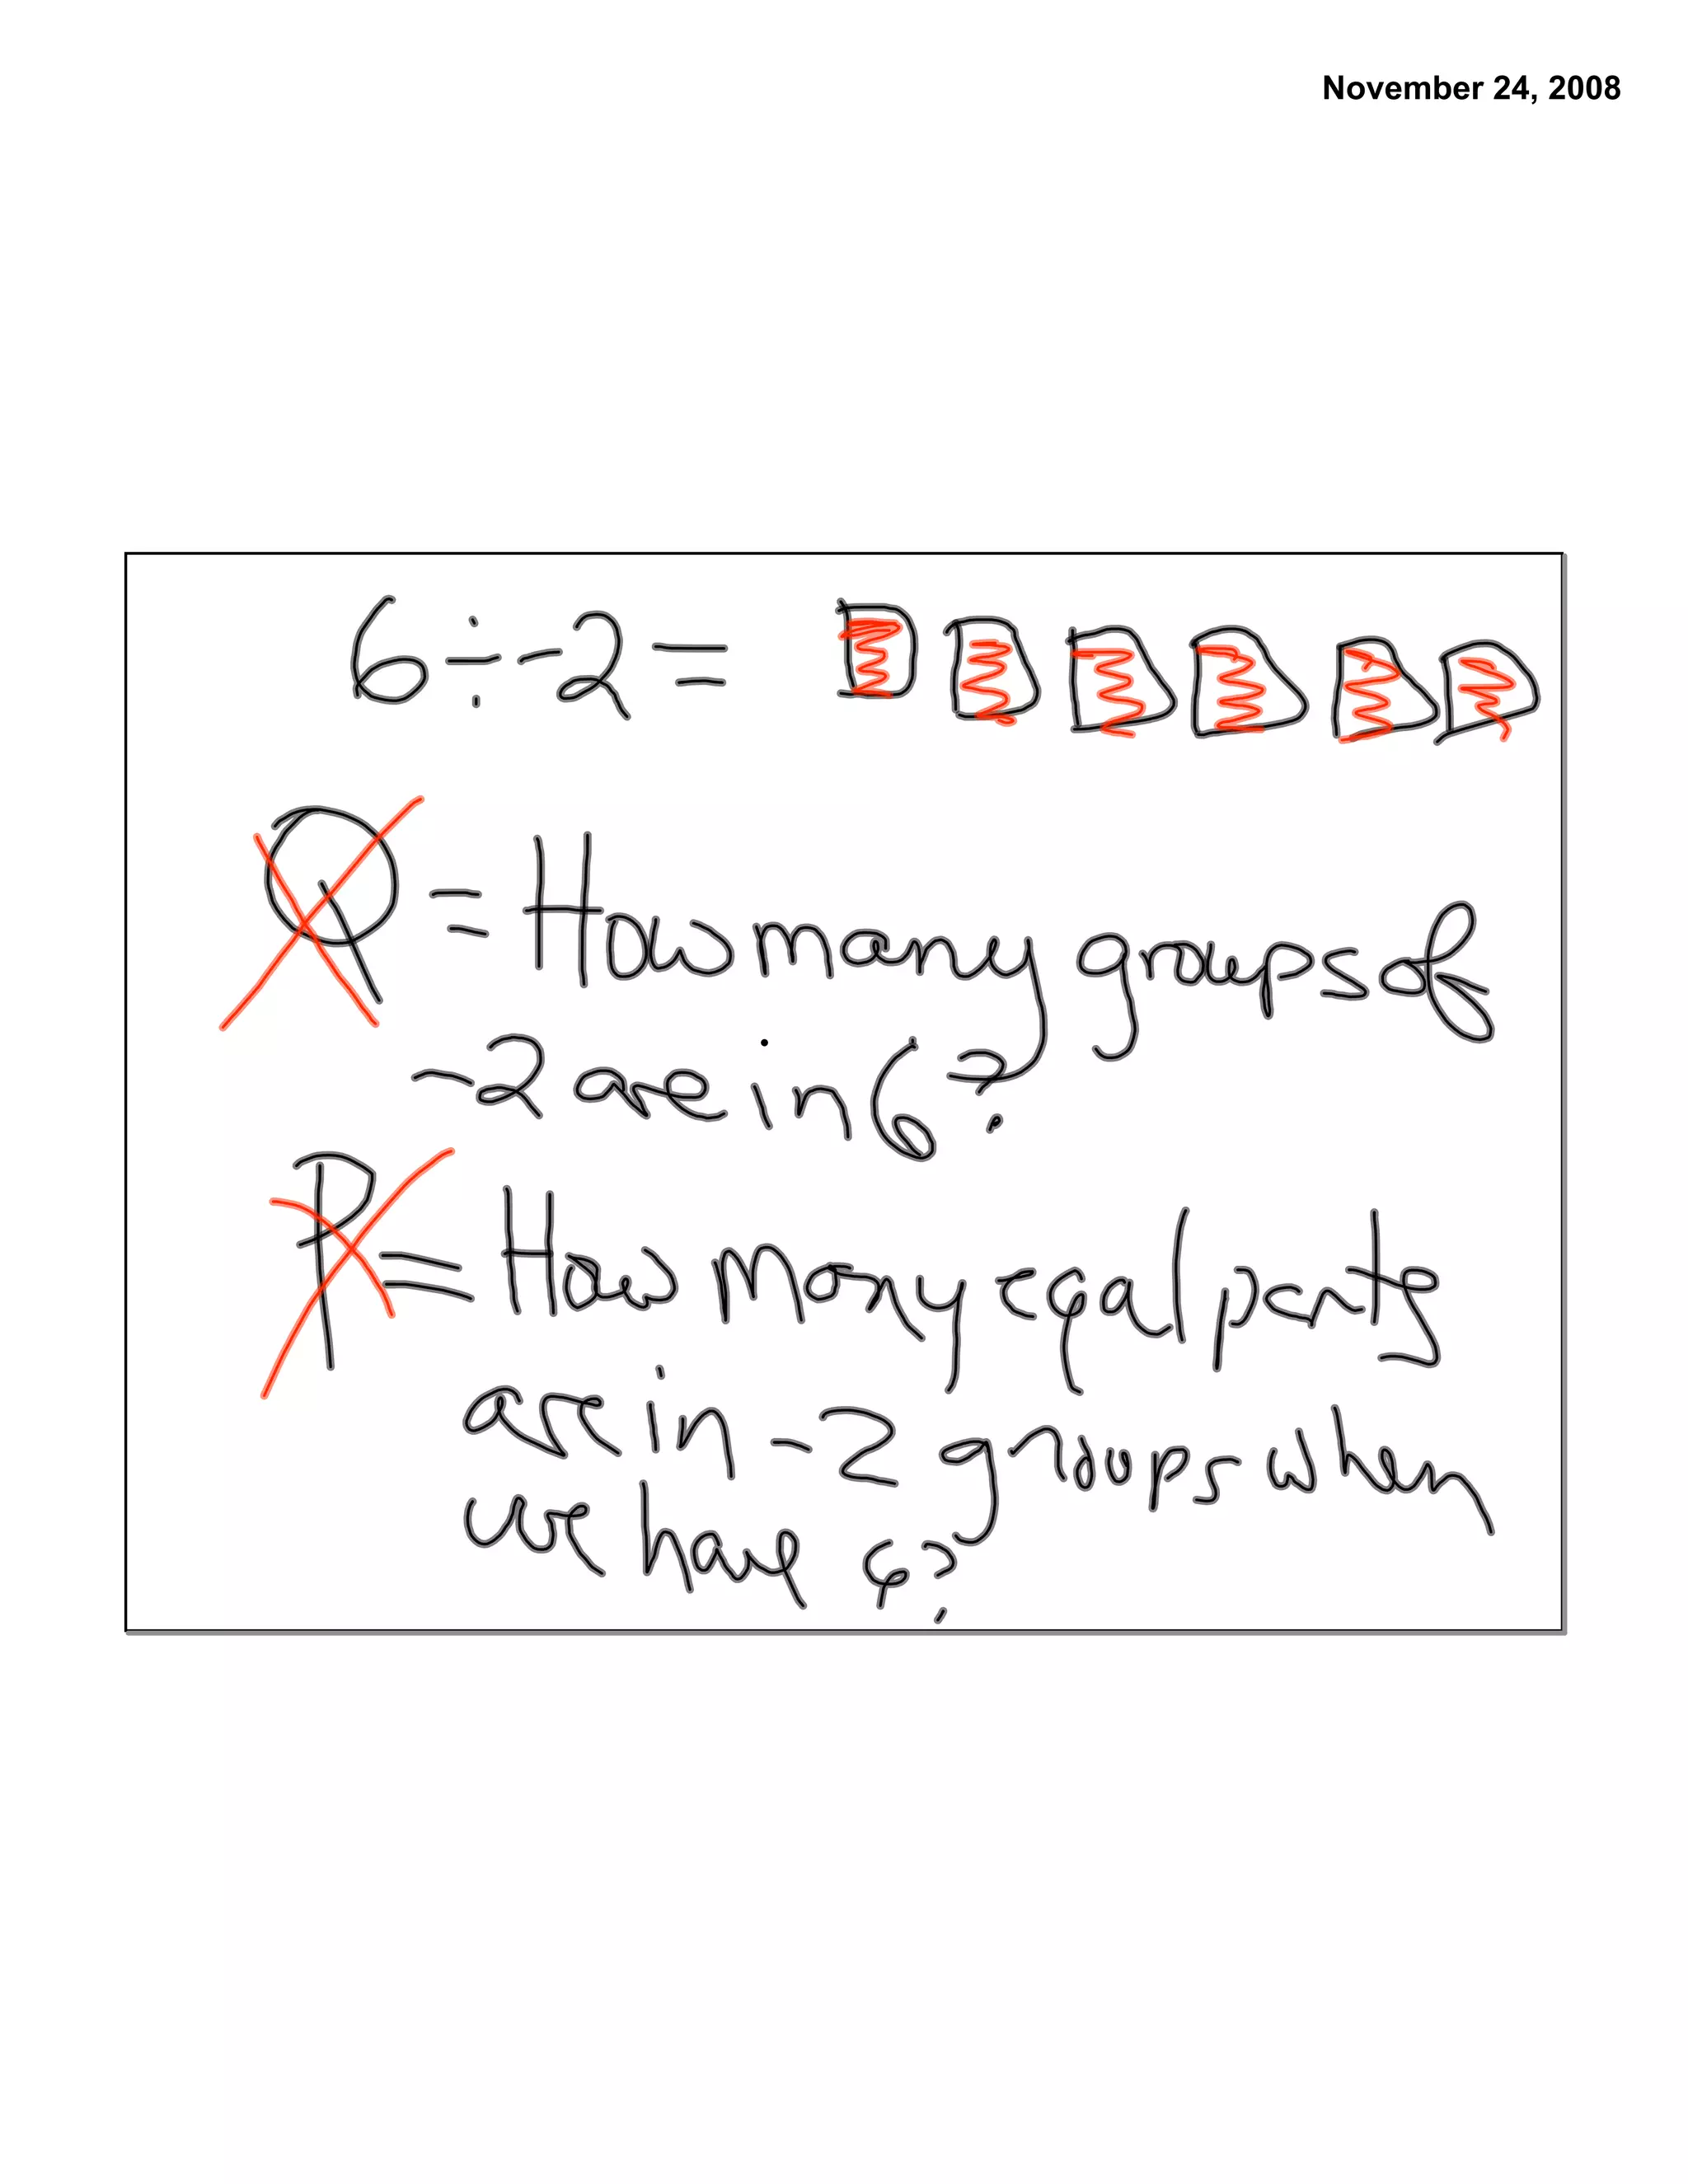 November 24, 2008
6 ÷ -2 =
Q = How many groups of
-2 are in 6?
P = How many equal parts
are in -2 groups when
we have 6?